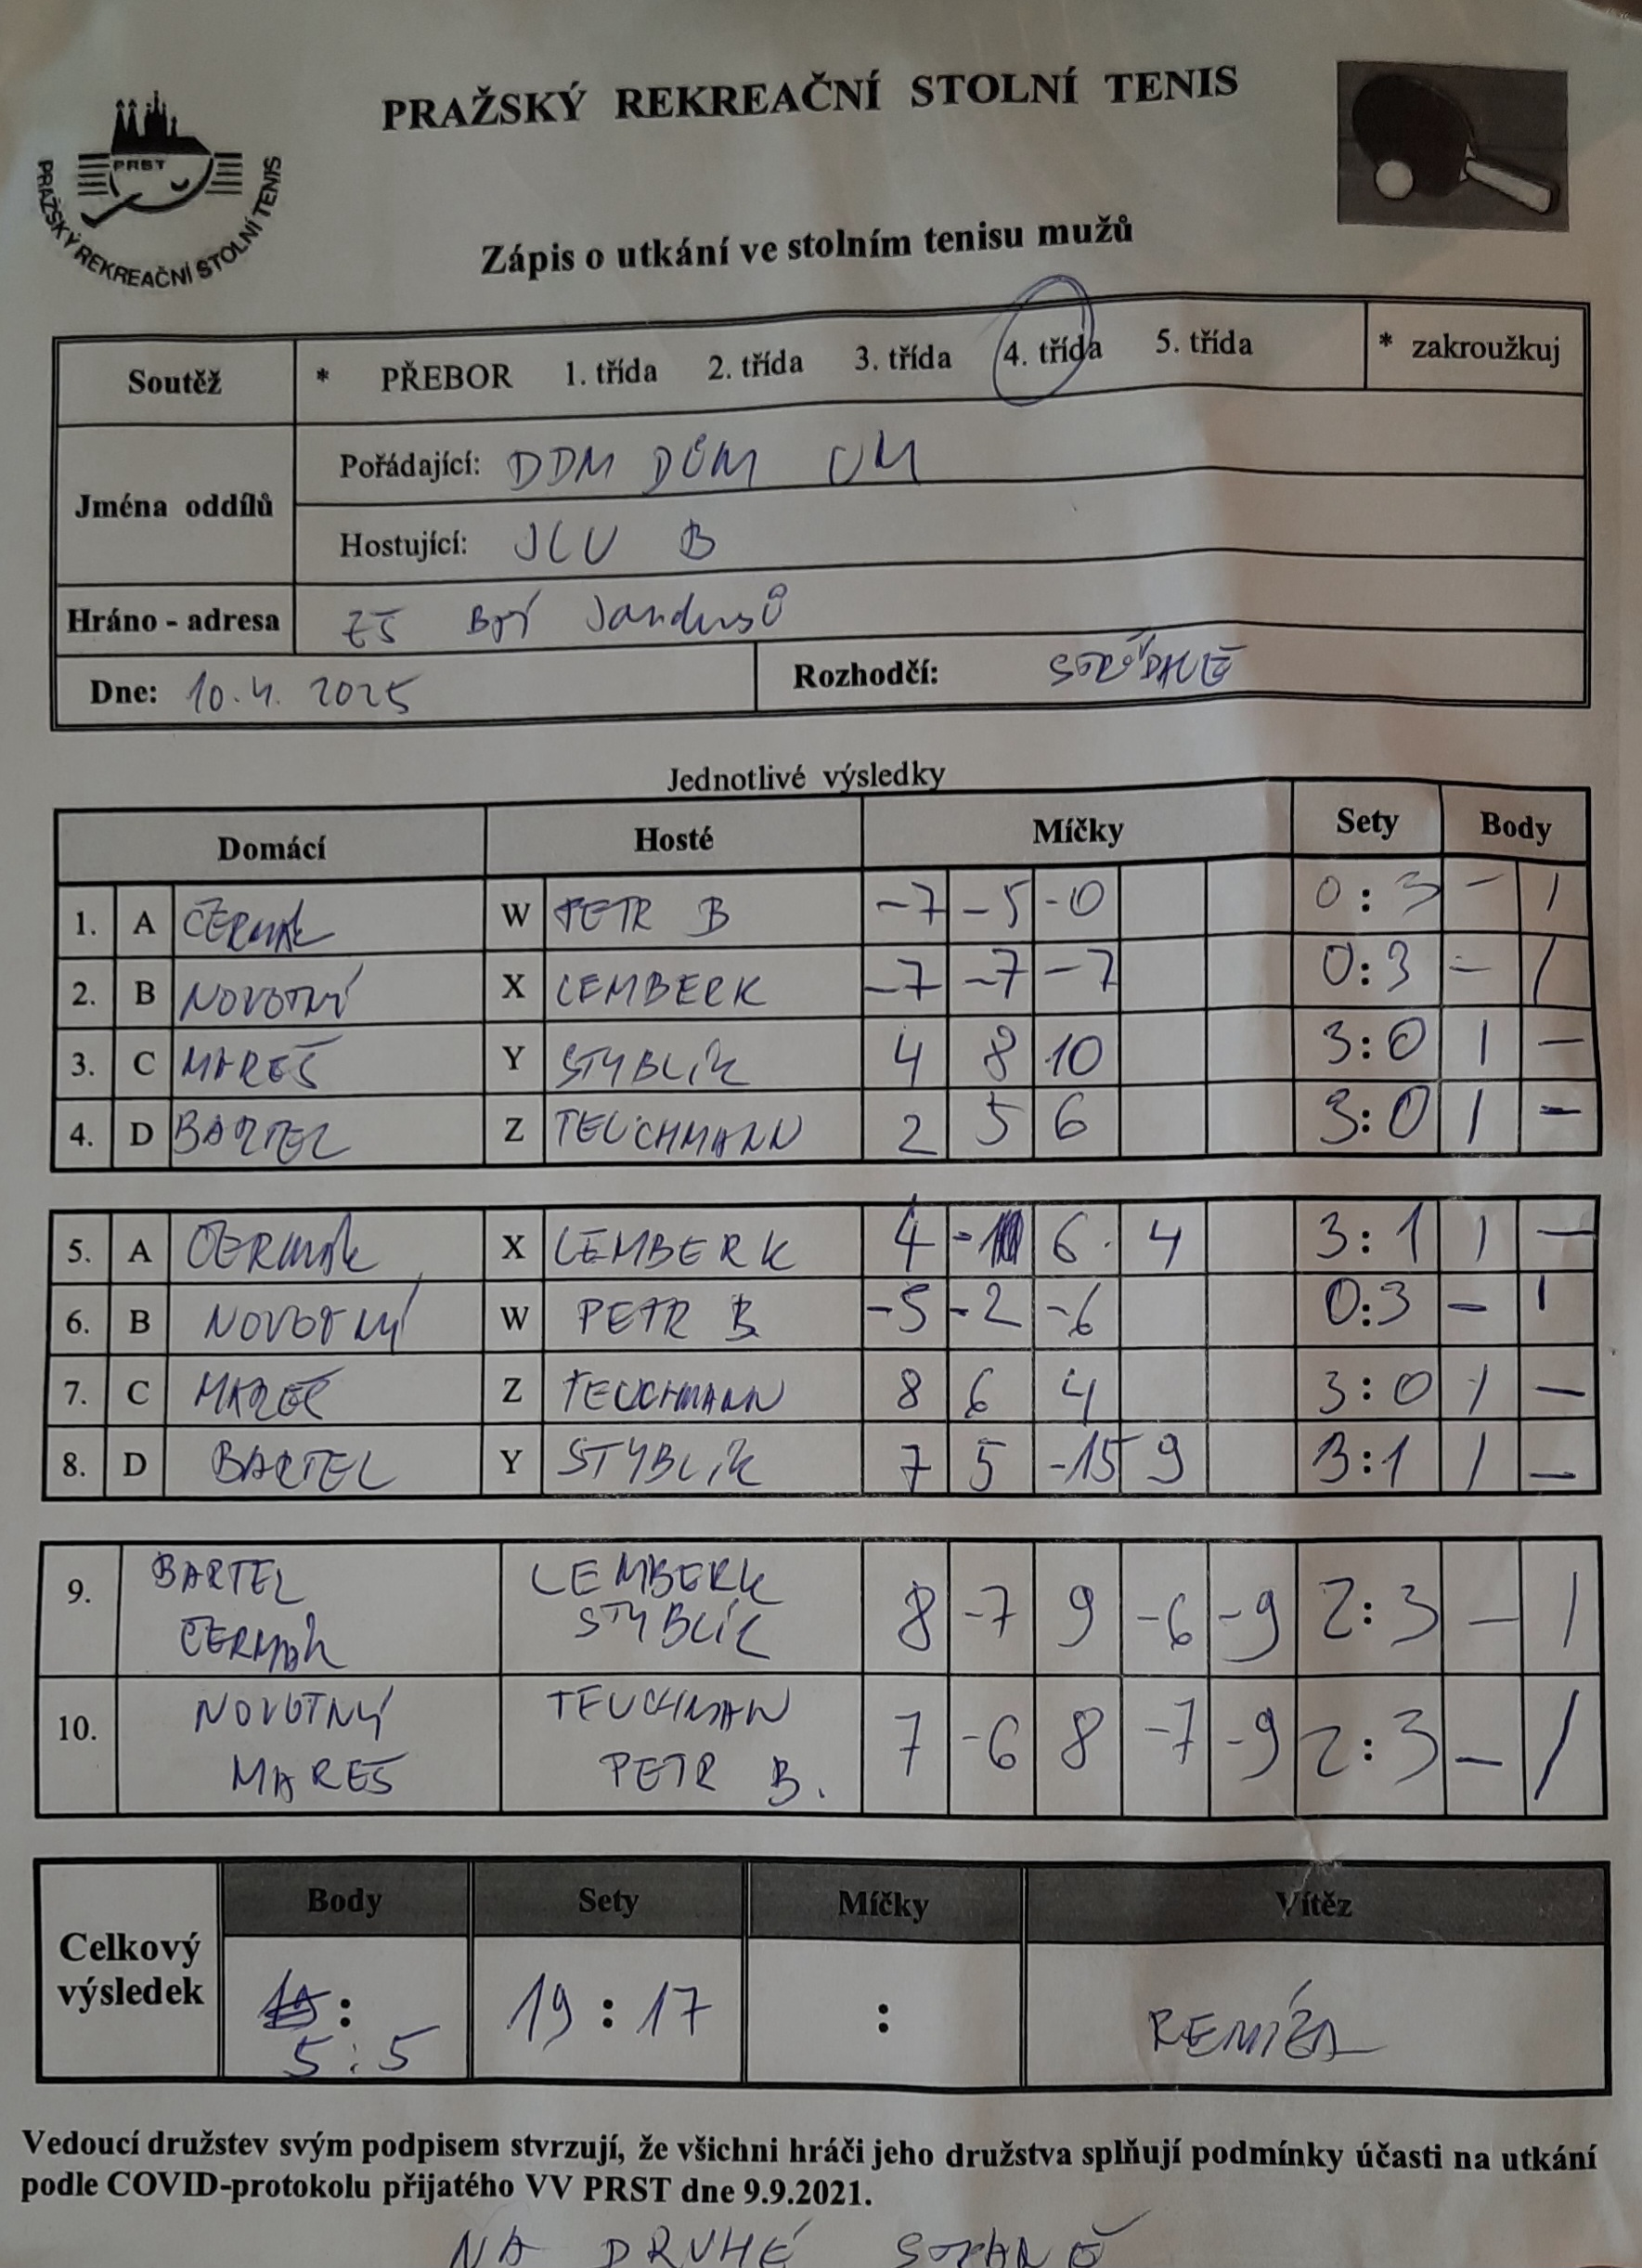 PRAŽSKÝ REKREAČNÍ STOLNÍ TENIS
PRST
PRAŽSKÝ REKREAČNÍ STOLNÍ TENIS
Zápis o utkání ve stolním tenisu mužů
Soutěž * PŘEBOR 1. třída 2. třída 3. třída 4. třída 5. třída * zakroužkuj
Jména oddílů
Pořádající: DDM DŮM UM
Hostující: JCU B
Hráno - adresa ZŠ Bří Jandusů
Dne: 10.4. 2025 Rozhodčí: STŘÍDAVĚ
Jednotlivé výsledky
Domácí Hosté Míčky Sety Body
1. A ČERMÁK W PETR B -7 -5 -0 0:3 - 1
2. B NOVOTNÝ X LEMBERK -7 -7 -7 0:3 - 1
3. C MAREŠ Y STYBLÍK 4 8 10 3:0 1 -
4. D BARTEL Z TEUCHMANN 2 5 6 3:0 1 -
5. A ČERMÁK X LEMBERK 4 6 4 3:1 1 -
6. B NOVOTNÝ W PETR B -5 -2 -6 0:3 - 1
7. C MAREŠ Z TEUCHMANN 8 6 4 3:0 1 -
8. D BARTEL Y STYBLÍK 7 5 -15 9 3:1 1 -
9. BARTEL ČERMÁK LEMBERK STYBLÍK 8 -7 9 -6 -9 2:3 - 1
10. NOVOTNÝ MAREŠ TEUCHMAN PETR B. 7 -6 8 -7 -9 2:3 - 1
Celkový výsledek
Body Sety Míčky Vítěz
: 5:5 19:17 : REMÍZA
Vedoucí družstev svým podpisem stvrzují, že všichni hráči jeho družstva splňují podmínky účasti na utkání
podle COVID-protokolu přijatého VV PRST dne 9.9.2021.
NA DRUHÉ STRANĚ